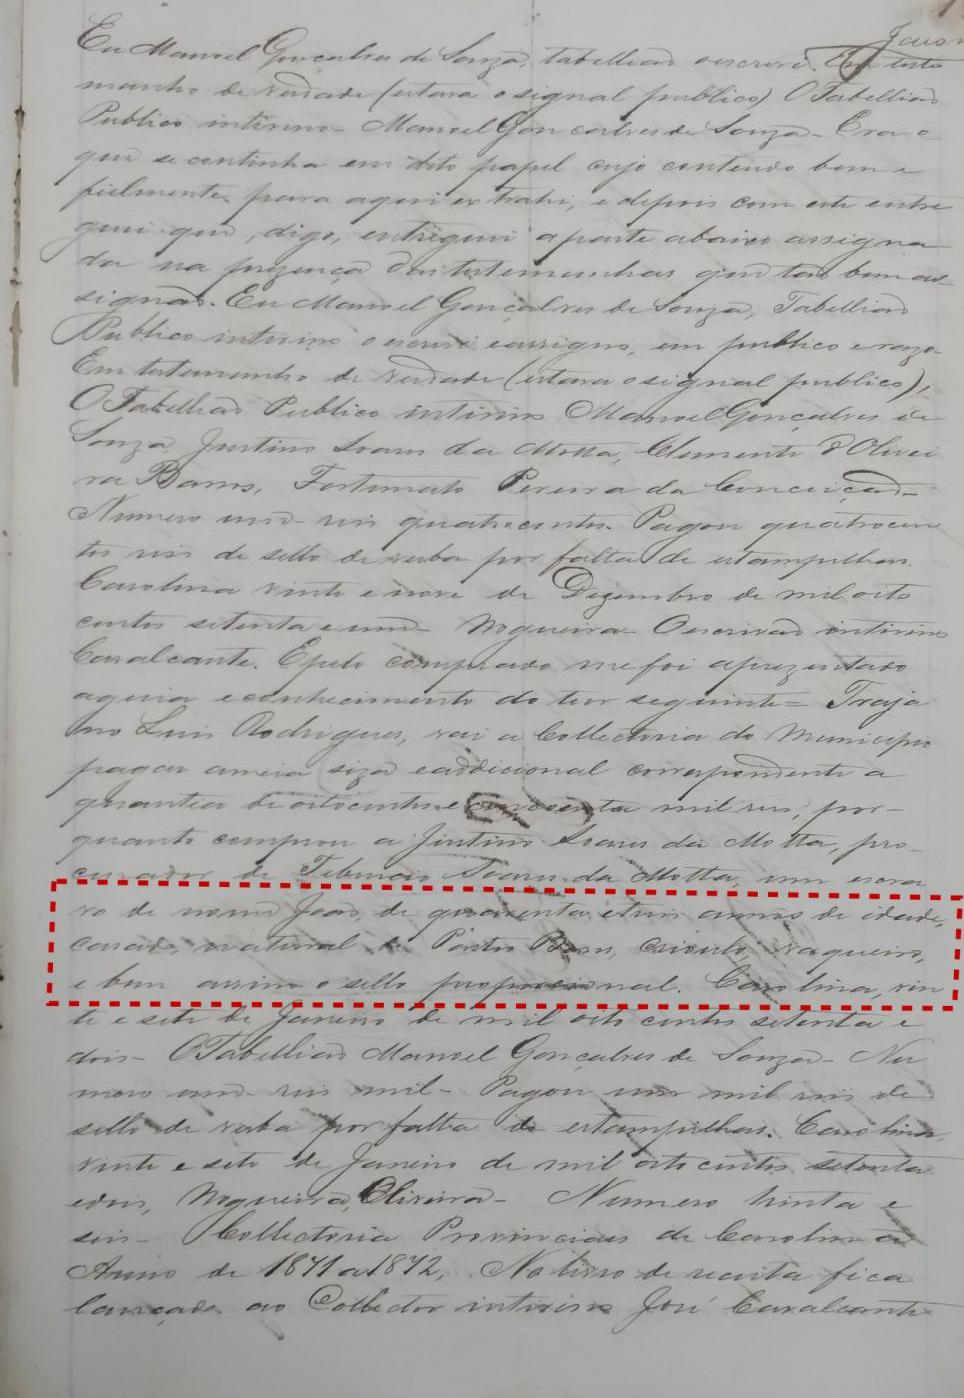 Eu Manoel Gonçalves de Souza, tabellião o escrevi. Em teste
munho de verdade (estava o signal publico) O Tabellião
Publico interino - Manoel Gonçalves de Souza - Era o
que se continha em dito papel cujo contendo bem e
fielmente para aqui extrahi, e depois com este entre
guei que, digo, entreguei a parte abaixo assigna
da na prezença das testemunhas que tão bem as-
signão. Eu Manoel Gonçalves de Souza, Tabellião
Publico interino o escrevi e assigno, em publico e razo.
Em testemunho de verdade (estava o signal publico),
O Tabellião Publico interino Manoel Gonçalves de
Souza, Justino Soares da Motta, Clemente d'Olivei
ra Barros, Fortunato Pereira da Conceição -
Numero um - reis quatrocentos. Pagou quatrocen
tos reis de sello de verba por falta de estampilhas.
Carolina vinte e nove de Dezembro de mil oito
centos setenta e um - Nogueira - O escrivão interino
Cavalcante. E pelo comprado me foi aprezentado
a guia e conhecimento do teor seguinte = Traja
no Luis Rodrigues, vai a Collectoria do Municipio
pagar a meia siza e addicional correspondente a
quantia de oitocentos e mil reis, por-
quanto comprou a Justino Soares da Motta, pro-
curador de Tiburcio Soares da Motta, um escra
vo de nome João, de quarenta e tres annos de idade,
casado, natural de Pastos Bons, Crioulo, vaqueiro,
e bem assim o sello proporcional. Carolina, vin
te e sete de Janeiro de mil oito centos setenta e
dois - O Tabellião Manoel Gonçalves de Souza - Nu
mero um - reis mil - Pagou um mil reis de
sello de verba por falta de estampilhas. Carolina,
vinte e sete de Janeiro de mil oito centos setenta
e dois, Nogueira, Oliveira - Numero trinta e
seis - Collectoria Provinciais de Carolina
Anno de 1871 a 1872, No livro de receita fica
lançado ao Collector interino José Cavalcante